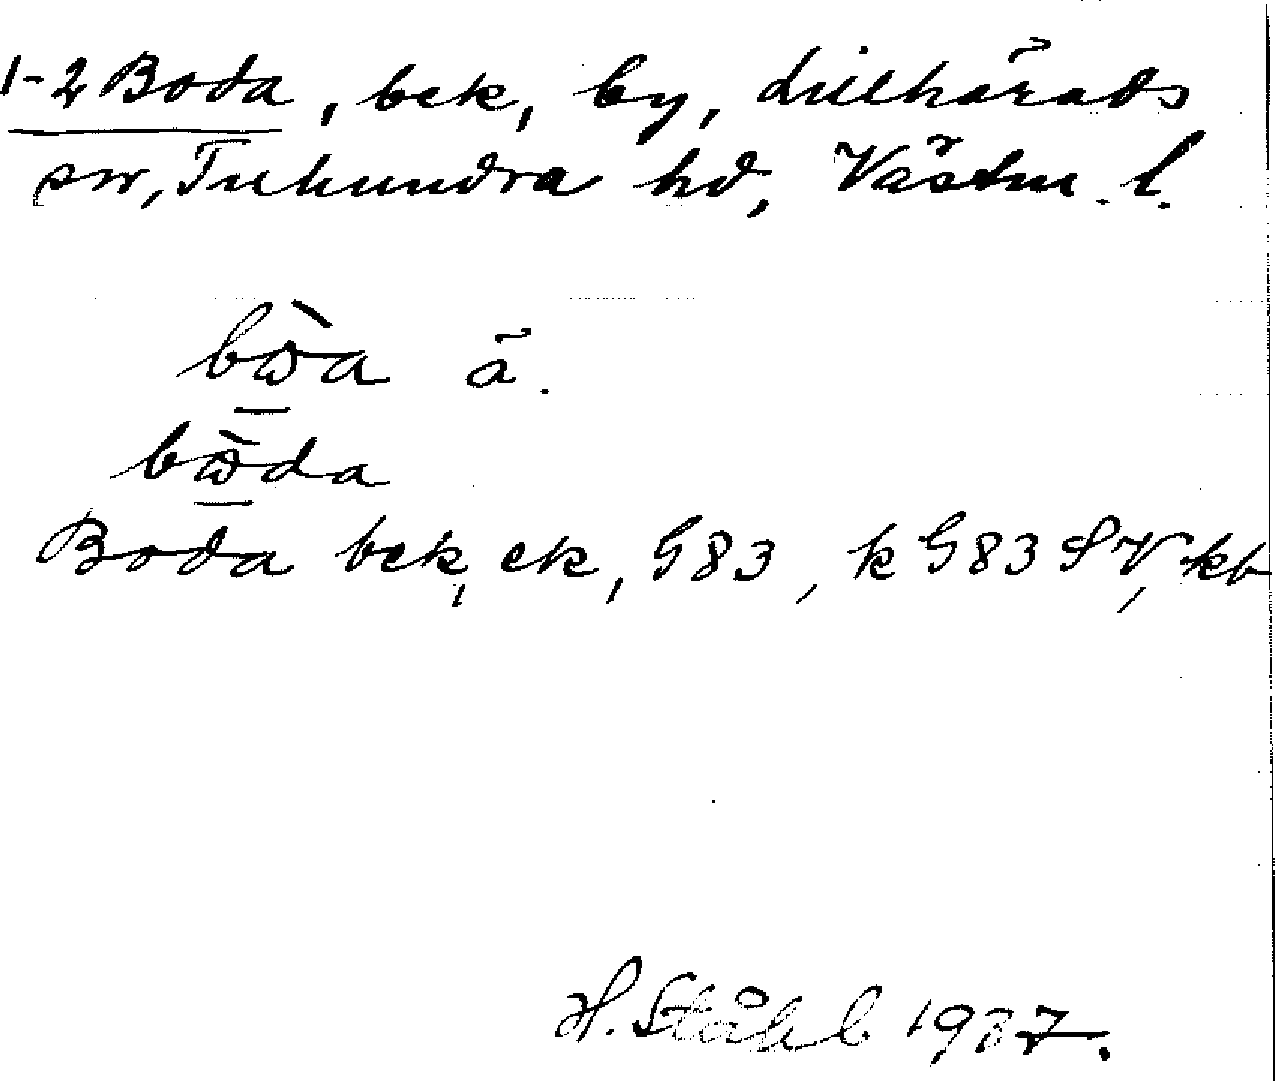 1-2 Boda, bek, by, Lillhärads
sn, Tuhundra hd, Västm. l.
bò̲a ä.
bò̲da
Boda bek, ek, G83, k G83 SV, kb
H. Ståhl 1937.